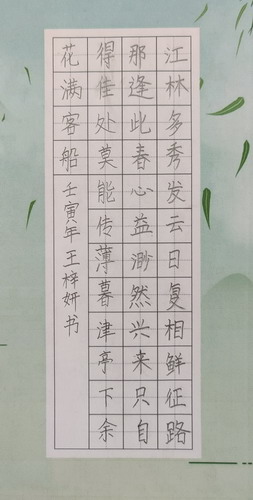 江林多秀发云日复相鲜征路
那逢此春心益渺然兴来只自
得佳处莫能传薄暮津亭下余
花满客船壬寅年王梓妍书